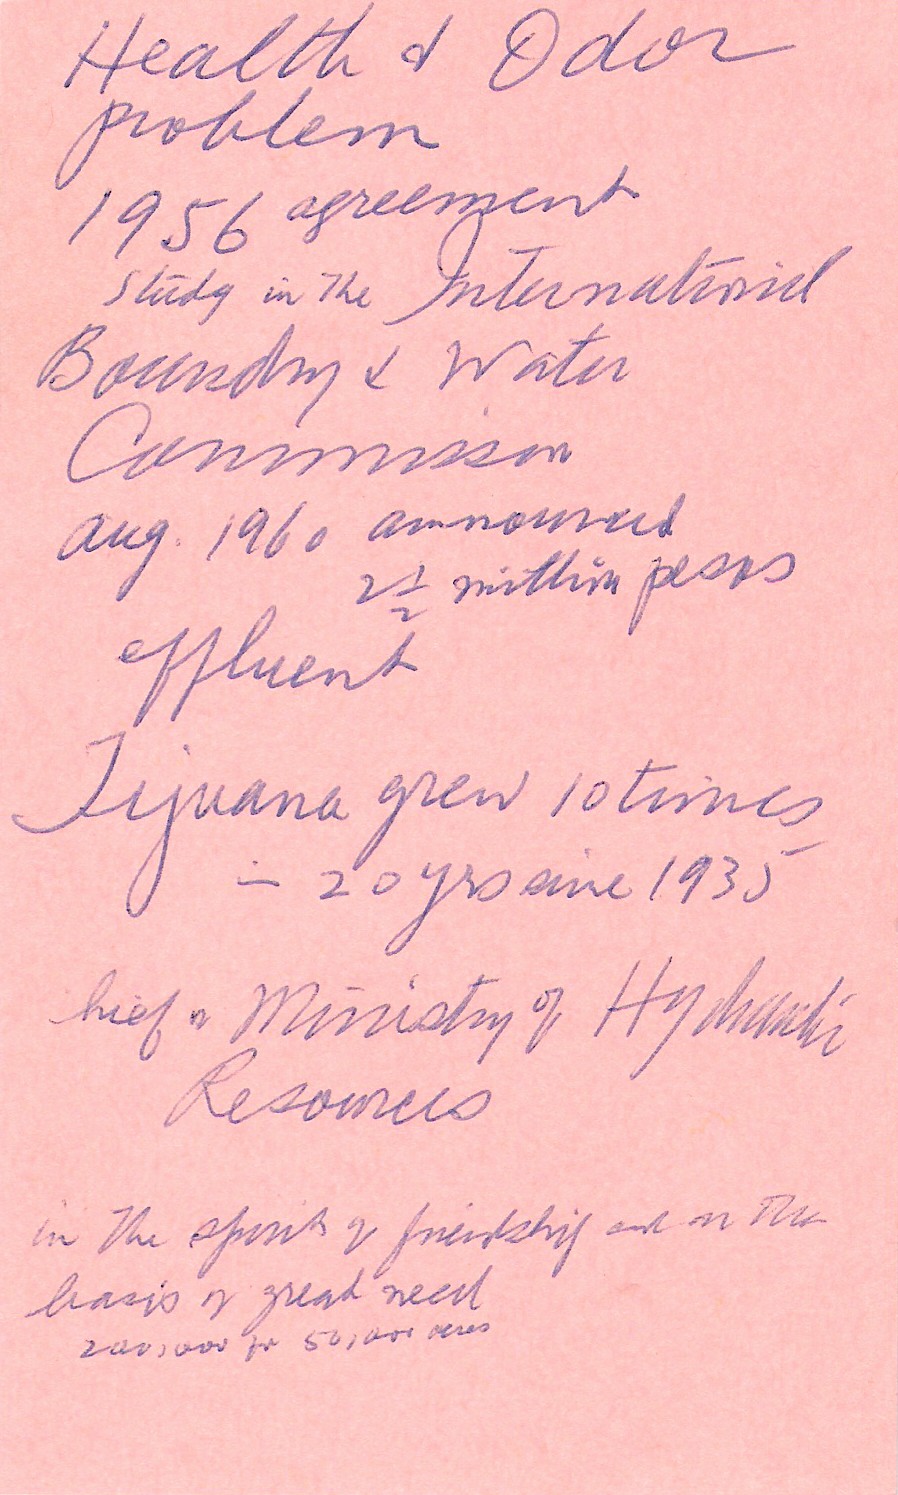 Health & Odor
problem
1956 agreement
Study in the International
Boundry & Water
Commission
Aug. 1960 announced
2 1/2 million pesos
effluent
Tijuana grew 10 times
in 20 yrs since 1935
Ministry of Hydraulic
Resources
in the spirit of friendship and on the
basis of great need
200,000 for 50,000 acres